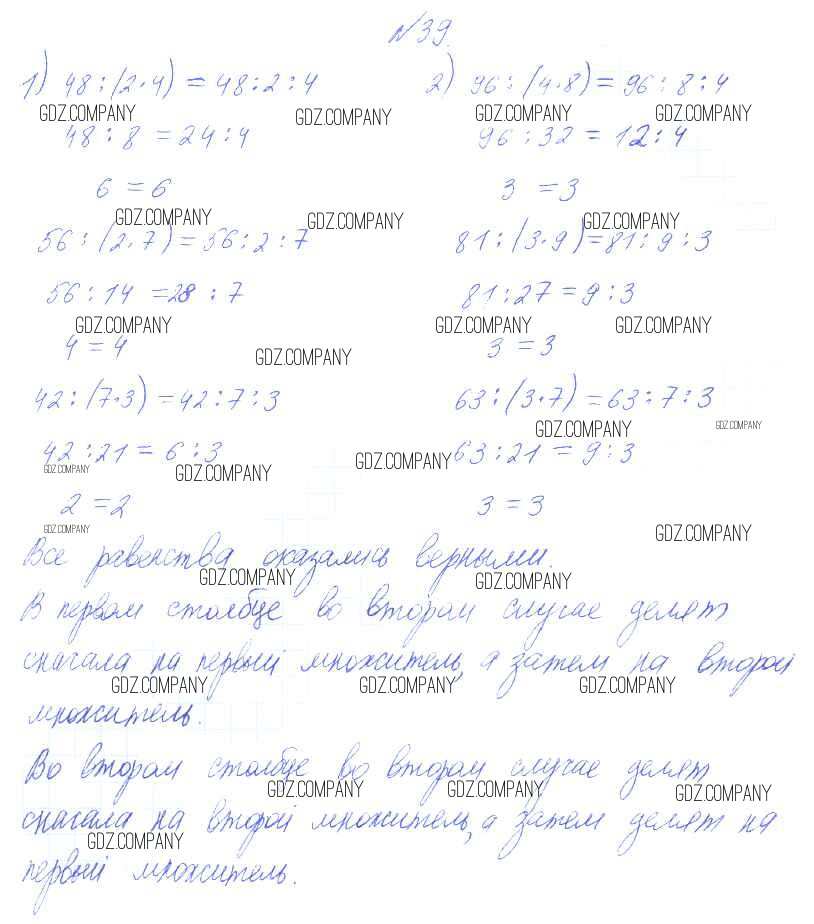 №39.
1) 48 : (2·4) = 48 : 2 : 4
2) 96 : (4·8) = 96 : 8 : 4
GDZ.COMPANY GDZ.COMPANY GDZ.COMPANY GDZ.COMPANY
48 : 8 = 24 : 4
96 : 32 = 12 : 4
6 = 6
3 = 3
GDZ.COMPANY GDZ.COMPANY GDZ.COMPANY
56 : (2·7) = 56 : 2 : 7
81 : (3·9) = 81 : 9 : 3
56 : 14 = 28 : 7
81 : 27 = 9 : 3
GDZ.COMPANY GDZ.COMPANY GDZ.COMPANY
4 = 4
3 = 3
GDZ.COMPANY
42 : (7·3) = 42 : 7 : 3
63 : (3·7) = 63 : 7 : 3
GDZ.COMPANY GDZ.COMPANY
42 : 21 = 6 : 3
63 : 21 = 9 : 3
GDZ.COMPANY GDZ.COMPANY GDZ.COMPANY
2 = 2
3 = 3
GDZ.COMPANY GDZ.COMPANY
Все равенства оказались верными.
GDZ.COMPANY GDZ.COMPANY
В первом столбце во втором случае делят
сначала на первый множитель, а затем на второй
GDZ.COMPANY GDZ.COMPANY GDZ.COMPANY
множитель.
Во втором столбце во втором случае делят
GDZ.COMPANY GDZ.COMPANY GDZ.COMPANY
сначала на второй множитель, а затем делят на
GDZ.COMPANY
первый множитель.